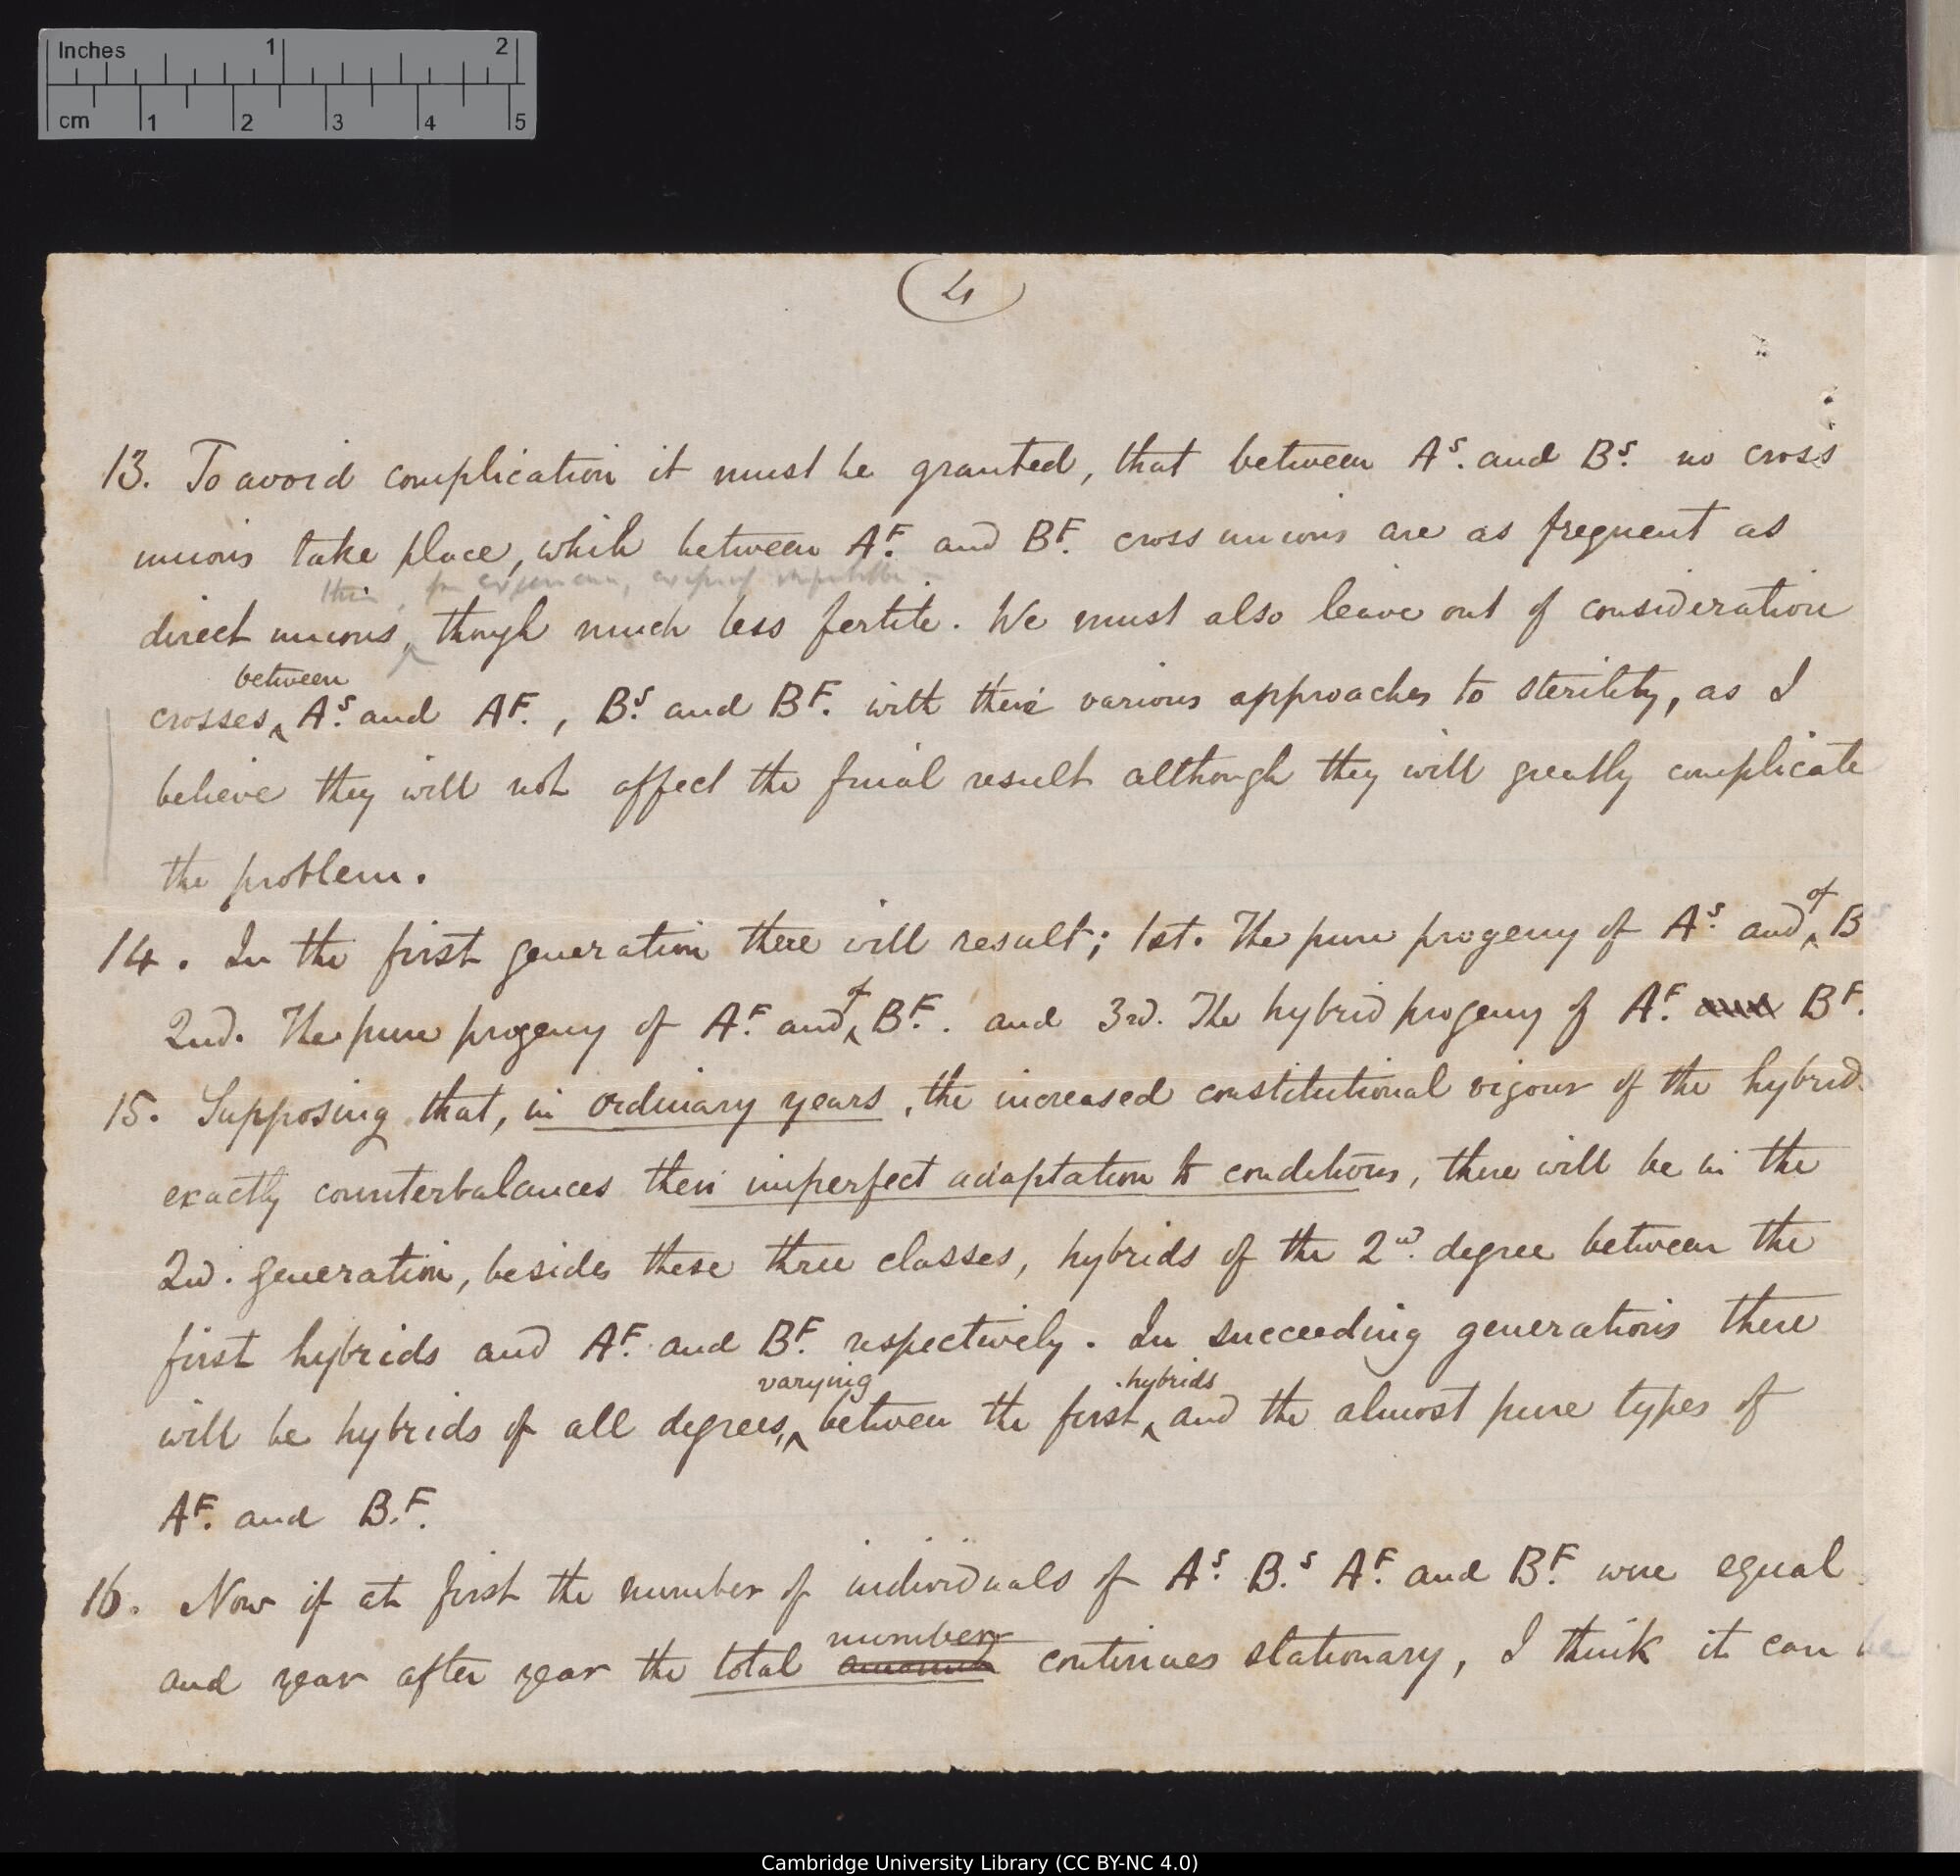 Inches 1 2
cm 1 2 3 4 5
4
13. To avoid complication it must be granted, that between A^S. and B^S. no cross
unions take place, while between A^F. and B^F. cross unions are as frequent as
direct unions, though much less fertile. We must also leave out of consideration
between
crosses, A^S. and A^F., B^S. and B^F. with their various approaches to sterility, as I
believe they will not affect the final result although they will greatly complicate
the problem.
of
14. In the first generation there will result; 1st. The pure progeny of A^S. and B
of
2nd. The pure progeny of A^F. and B^F. and 3rd. The hybrid progeny of A^F. and B^F.
15. Supposing that, in ordinary years, the increased constitutional vigour of the hybrid
exactly counterbalances their imperfect adaptation to conditions, there will be in the
2nd. generation, besides these three classes, hybrids of the 2nd. degree between the
first hybrids and A^F. and B^F. respectively. In succeeding generations there
varying hybrids
will be hybrids of all degrees, between the first and the almost pure types of
A^F. and B.^F.
16. Now if at first the number of individuals of A^S. B.^S A^F. and B^F. were equal
number
and year after year the total amount continues stationary, I think it can be
Cambridge University Library (CC BY-NC 4.0)